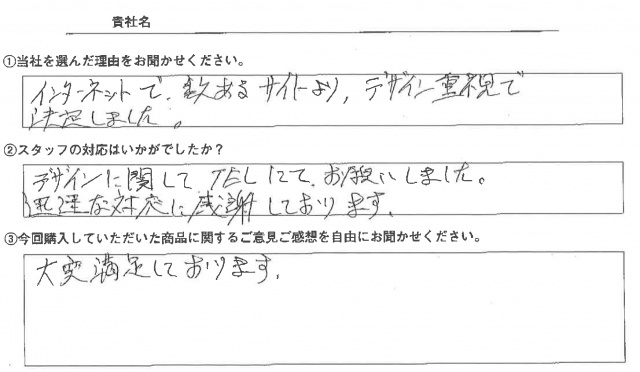 貴社名
①当社を選んだ理由をお聞かせください。
インターネットで、数あるサイトより、デザイン重視で
決定しました。
②スタッフの対応はいかがでしたか？
デザインに関して TELにて、お願いしました。
迅速な対応に感謝しております。
③今回購入していただいた商品に関するご意見ご感想を自由にお聞かせください。
大変満足しております。